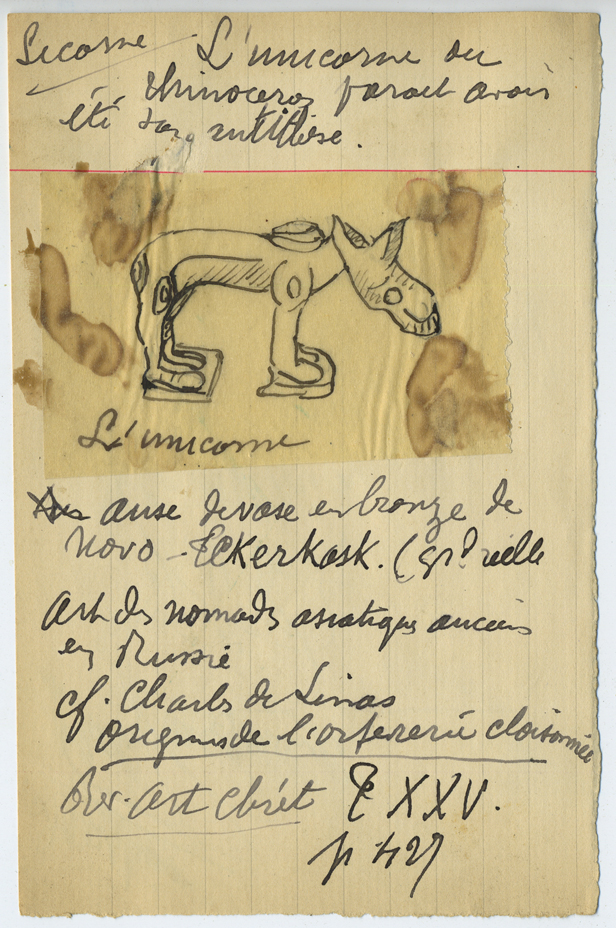 Licorne L'unicorne ou
rhinoceros parait avoir
été son antithèse.
L'unicorne
anse de vase en bronze de
Novo-Tckerkask. (gr^d vielle
Art des nomades asiatiques anciens
en Russie
cf. Charles de Linas
Origines de l'orfevrerie cloisonnée
Rev. Art Chrét T XXV.
p 427